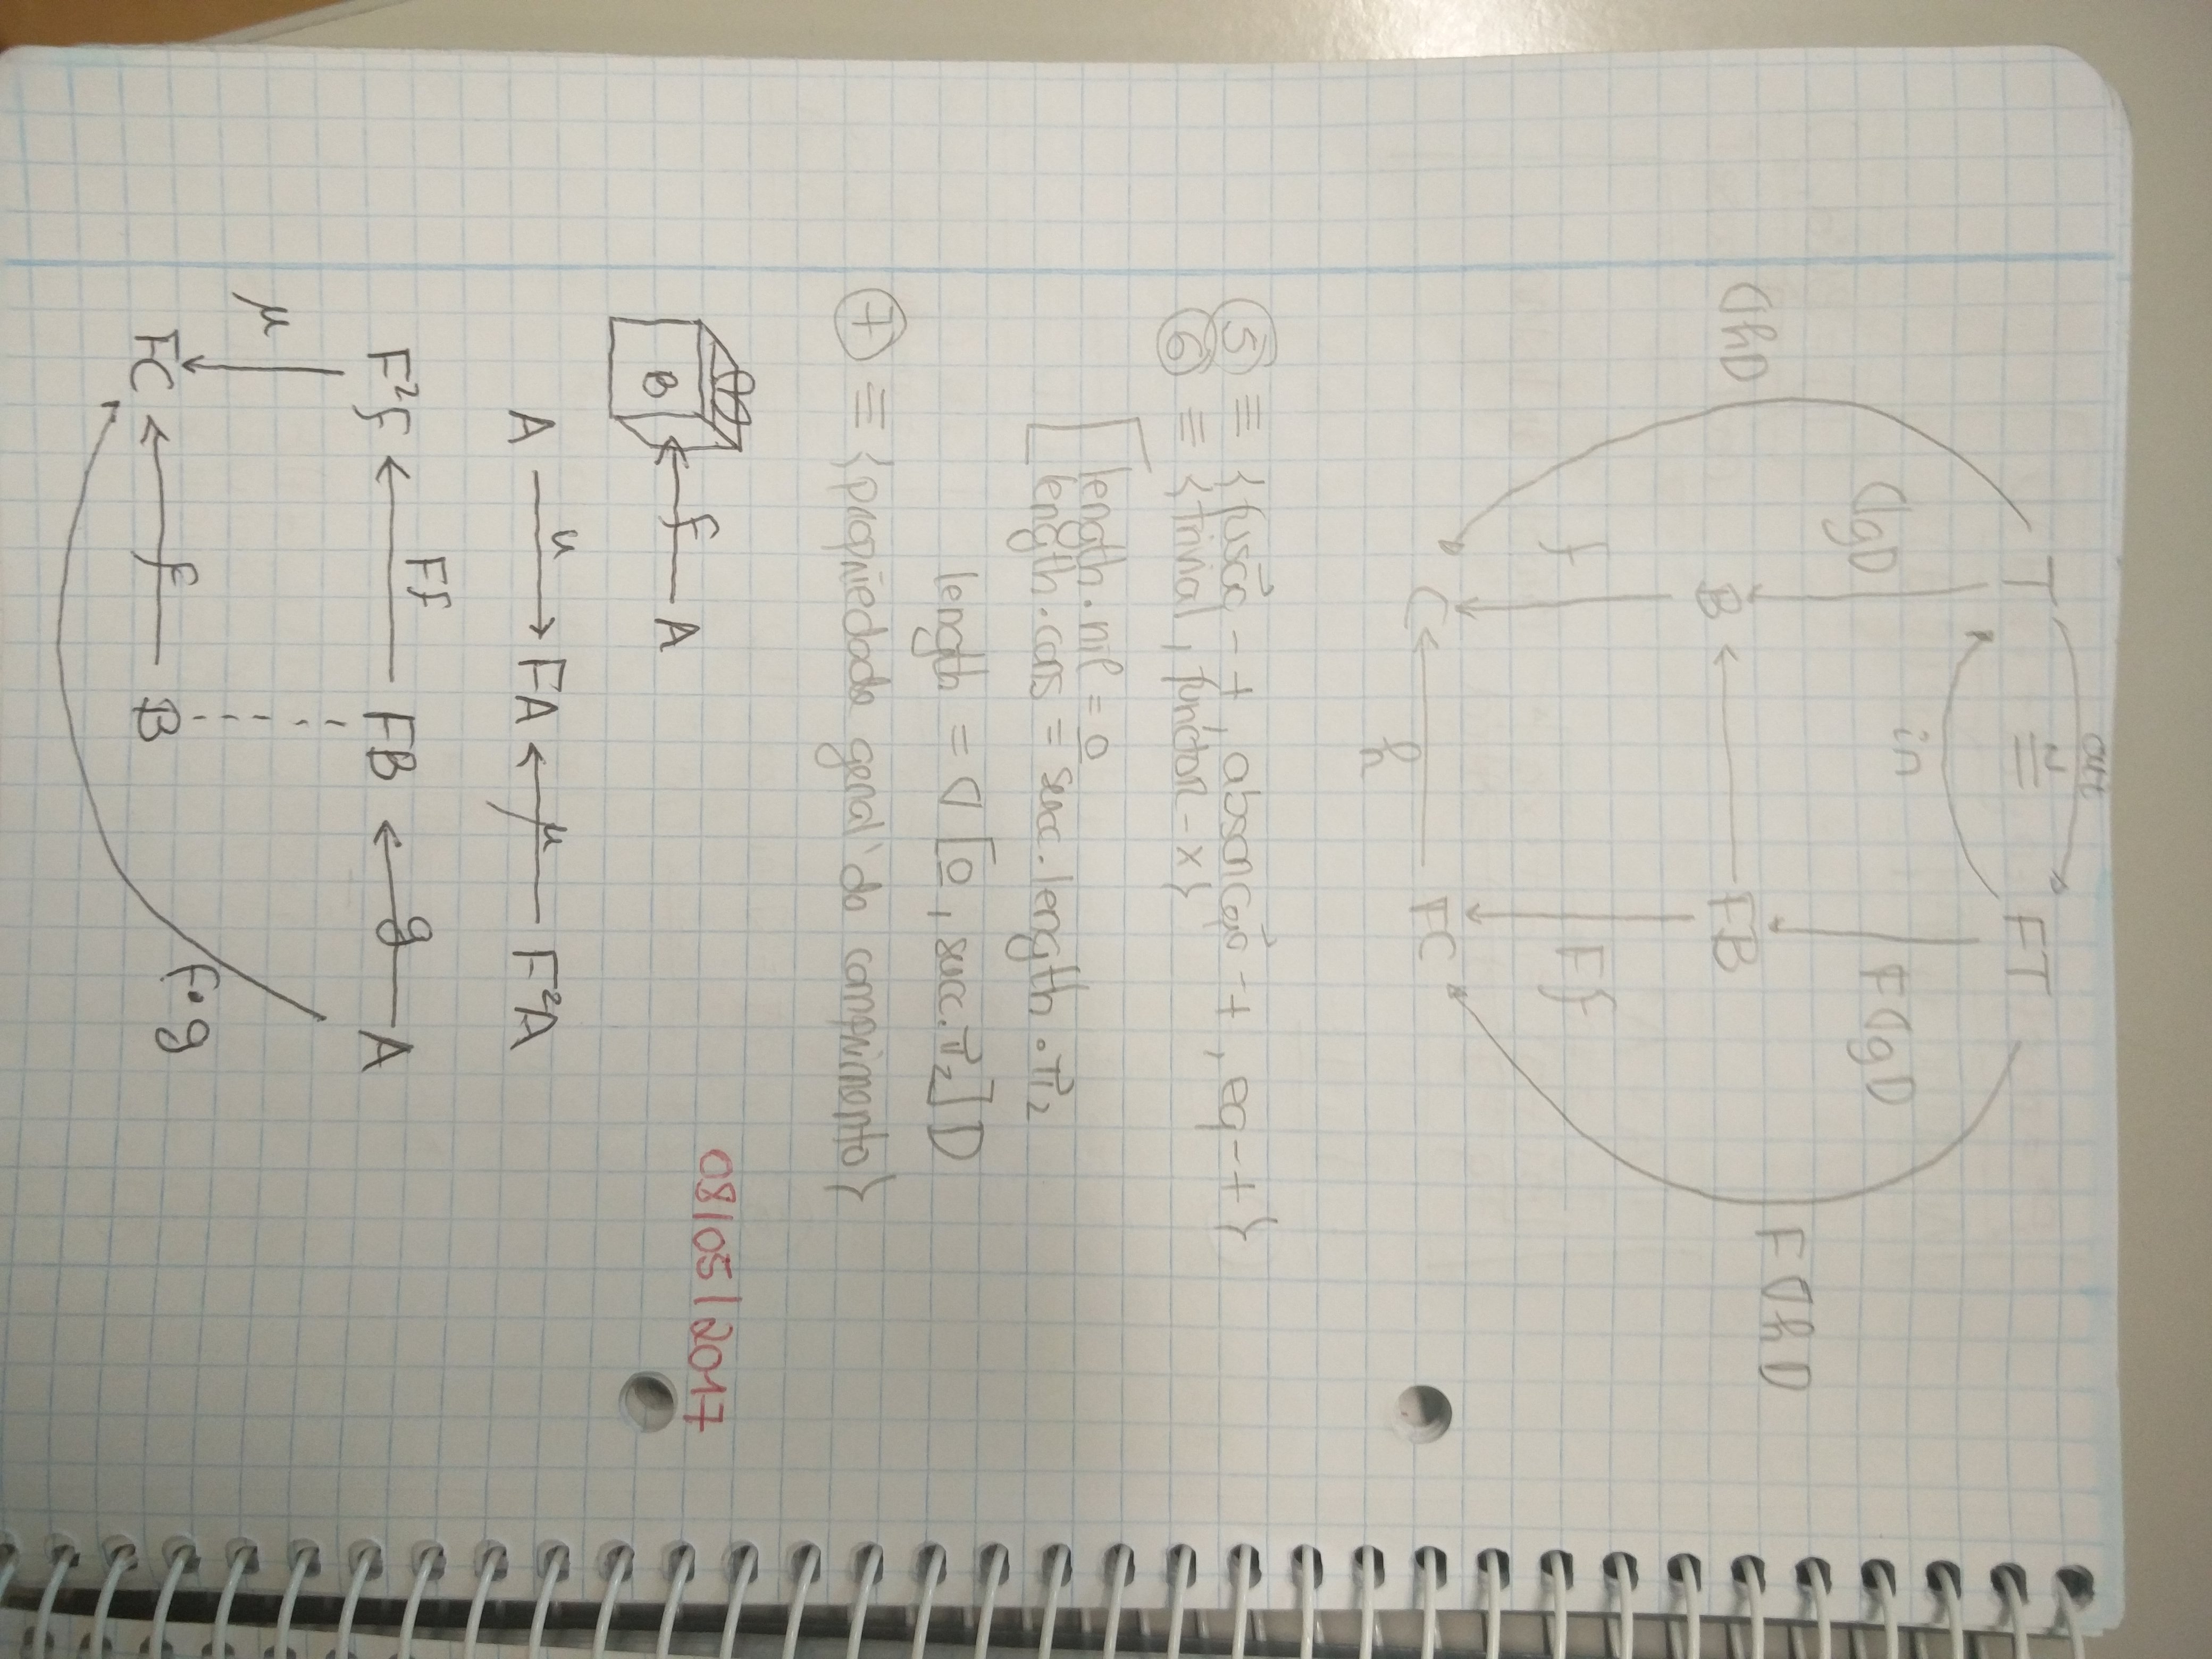 out
T ≅ FT
in
⦇g⦈ F⦇g⦈
⦇h⦈ F⦇h⦈
B FB
f Ff
C FC
h
⑤ ≡ {fusão-+, absorção-+, eq-+}
⑥ ≡ {trivial, functor-x}
length.nil = 0
length.cons = succ.length.π₂
length = ⦇[0, succ.π₂]⦈
⑦ ≡ {propriedade geral do comprimento}
08/05/2017
B f A
u μ
A FA F²A
Ff g
F²f FB A
μ
f f•g
FC B